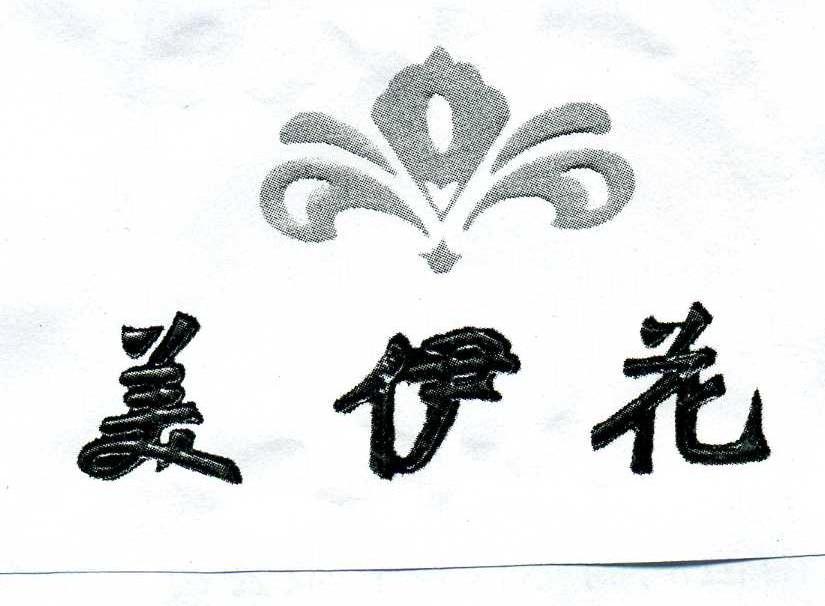 美伊花